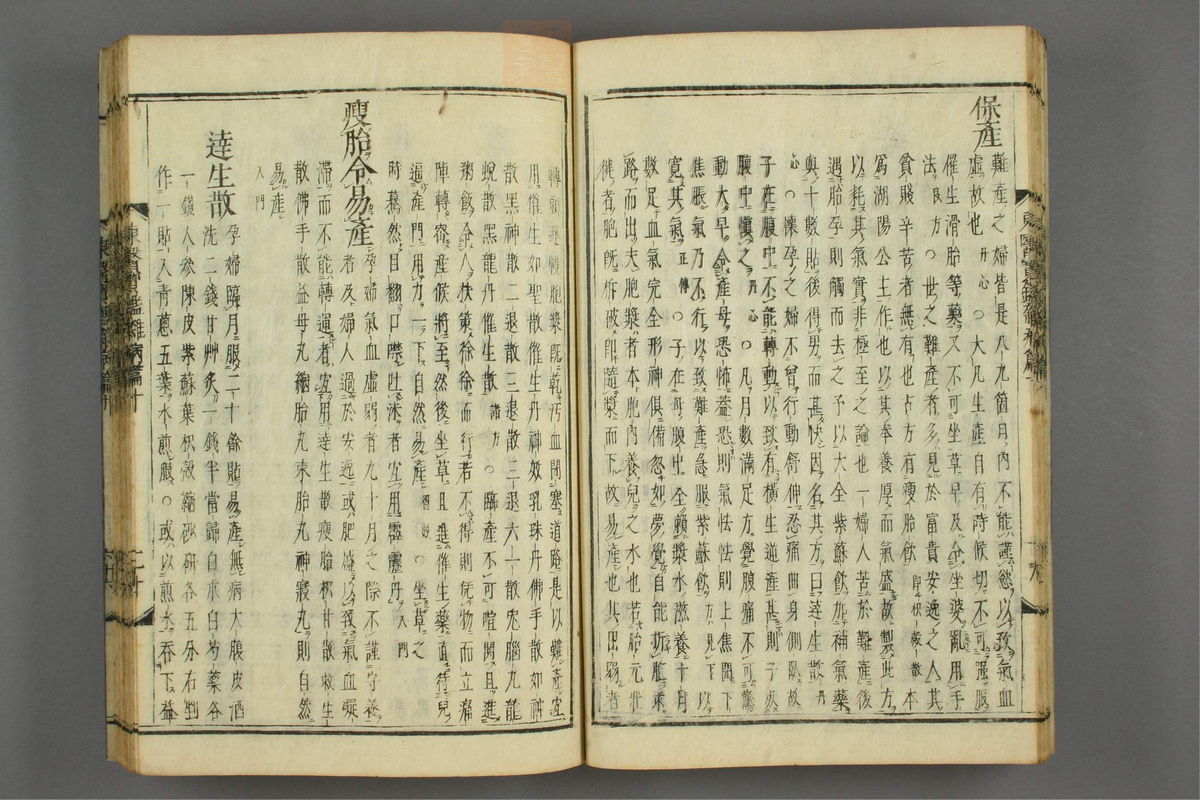 保產
難產之婦皆是八九箇月內不能謹慾以致氣血
虛故也丹心○大凡生產自有時候切不可强服
催生滑胎等藥又不可坐草早及令坐婆亂用手
法良方○世之難產者多見於富貴安逸之人其
貧賤辛苦者無有也古方有瘦胎飲卽枳殼散本
爲湖陽公主作也以其奉養厚而氣盛故製此方
以耗其氣實非極至之論也一婦人苦於難產後
遇胎孕則去之予以大全紫蘇飲加神氣藥
與十數貼後得男而甚快因名其方曰達生散丹
心○懷孕之婦不曾行動舒伸忍痛曲身側臥故
子在腹中不能轉動以致有橫生逆產甚則子死
腹中愼之丹心○凡月數滿足方覺腹痛不可驚
動太早令產母恐怖蓋恐則氣怯怯則上焦閉下
焦脹氣乃不行以致難產急服紫蘇飲方見下以
寬其氣正傳○子在母腹中全賴漿水滋養十月
數足血氣完全形神俱備忽如夢覺自能拆胞求
路而出夫胞漿者本胞內養兒之水也若胎元壯
健者胞旣拆破卽隨漿而下故易產也其困弱者
轉頭遲慢胞漿旣乾汚血閉塞道路是以難產宜
用催生如聖散催生丹神效乳珠丹佛手散如神
散黑神散二退散三退散三退六一散兎腦丸龍
蛻散黑龍丹催生散諸方○臨產不可喧鬧且進
粥飲令人扶策徐徐而行若不得則凭物而立痛
陣轉密產候將至然後坐草且進催生藥直待兒
逼產門用力一下自然易產得效○坐草之
時驀然目翻口噤吐沫者宜用霹靂丹入門
瘦胎令易產孕婦氣血虛弱者九十月之際不謹守養
者及婦人過於安逸或肥盛以致氣血凝
滯而不能轉運者宜用達生散瘦胎枳甘散救生
散佛手散益母丸縮胎丸束胎丸神寢丸則自然
易產
入門
達生散孕婦臨月服二十餘貼易產無病大腹皮酒
洗二錢甘艸炙一錢半當歸白朮白芍藥各
一錢人參陳皮紫蘇葉枳殼縮砂研各五分右剉
作一貼入靑蔥五葉水煎服○或以煎水吞下益